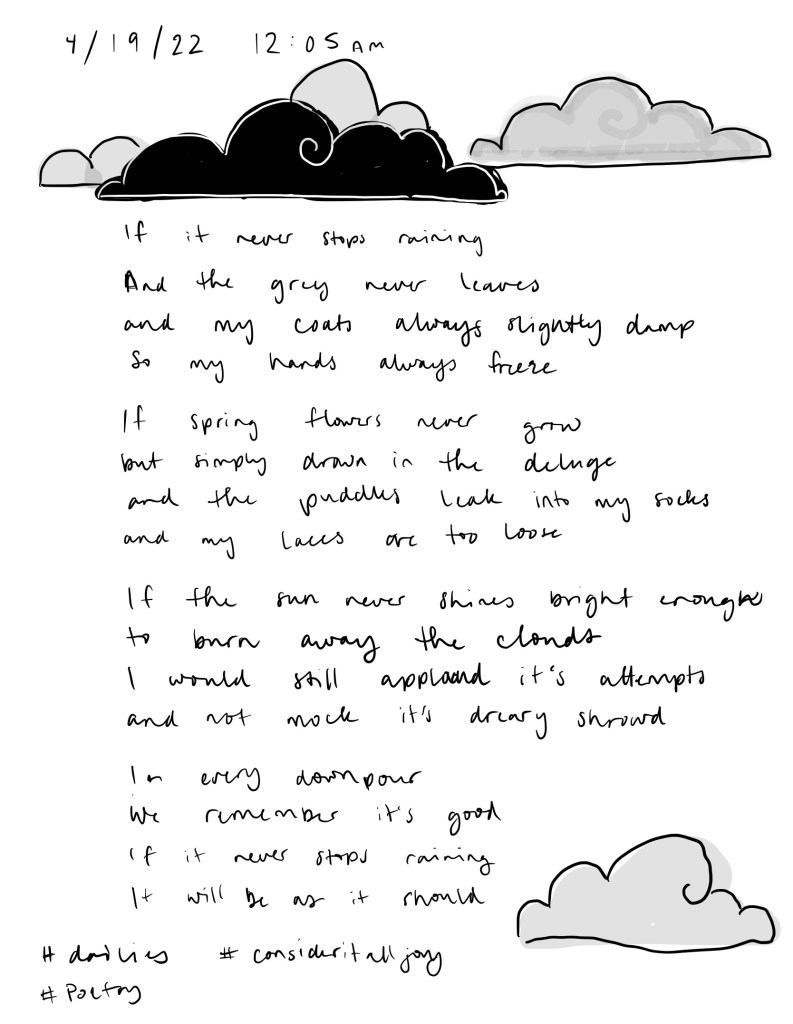 4/19/22 12:05 AM
If it never stops raining
And the grey never leaves
and my coats always slightly damp
So my hands always freeze
If spring flowers never grow
but simply drown in the deluge
and the puddles leak into my socks
and my laces are too loose
If the sun never shines bright enough
to burn away the clouds
I would still applaud it's attempts
and not mock it's dreary shroud
In every downpour
We remember it's good
If it never stops raining
It will be as it should
#dailies #consideritalljoy
#Poetry